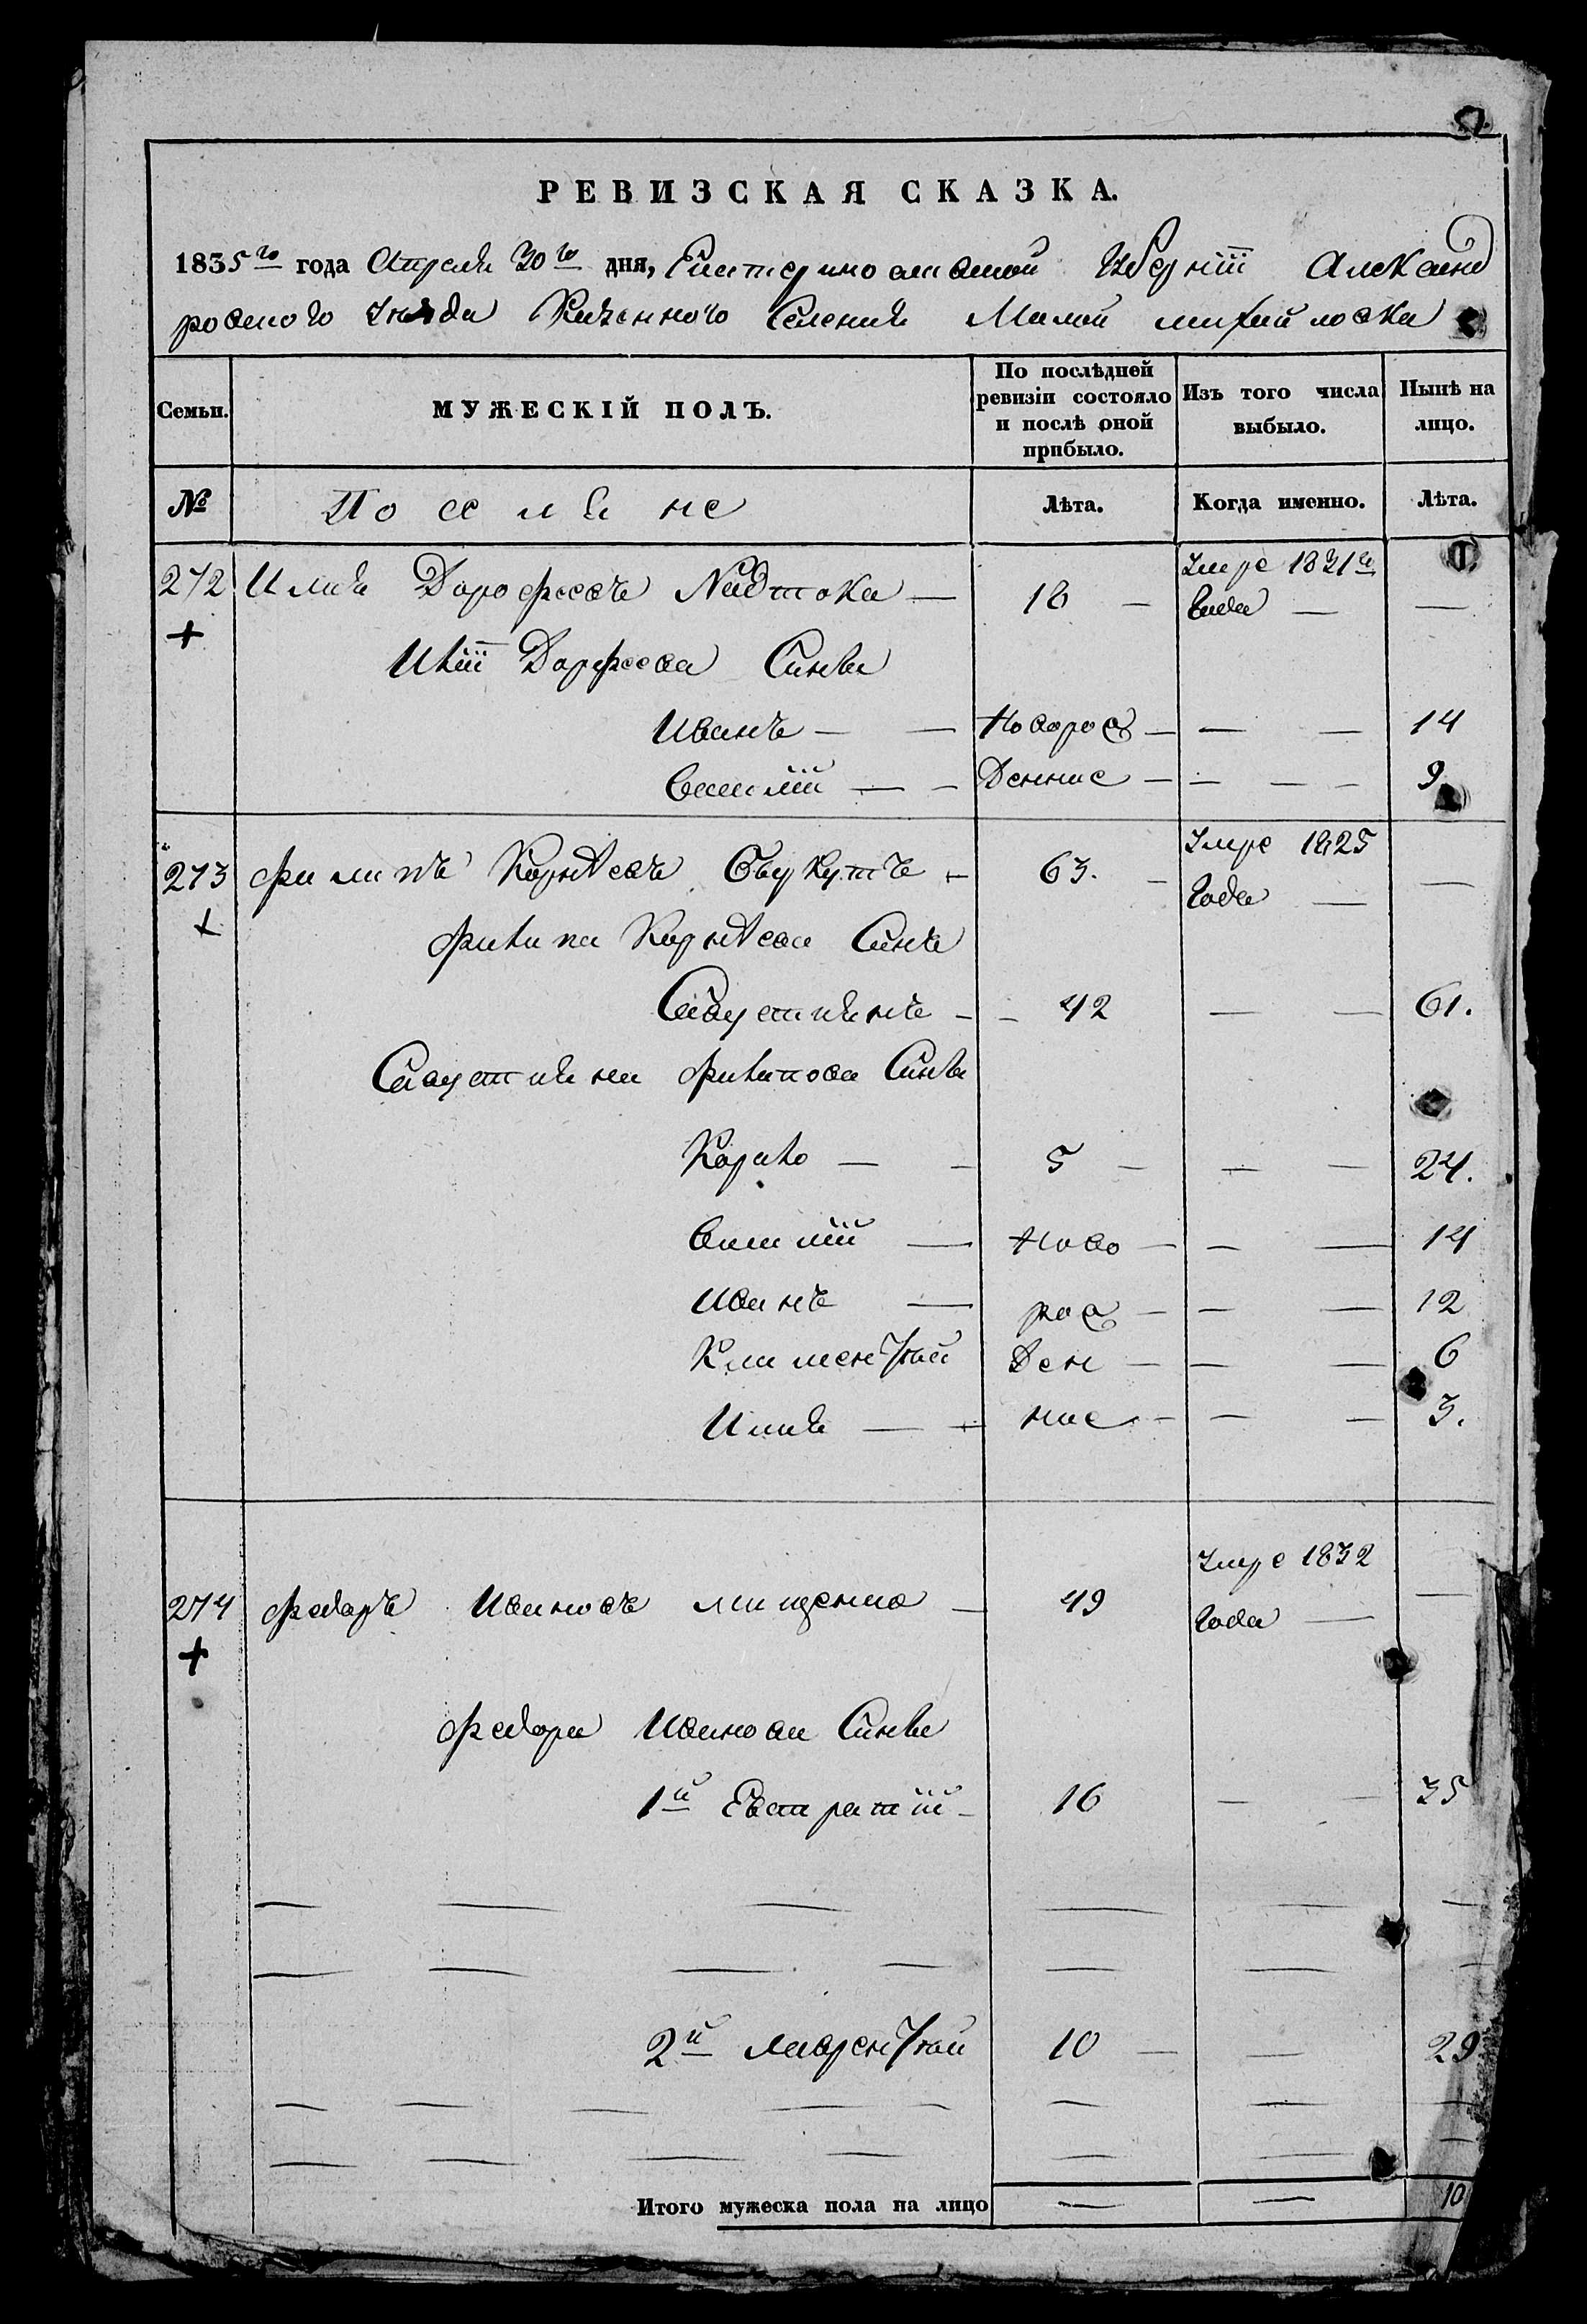 РЕВИЗСКАЯ СКАЗКА.
1835го года Апреля 30го дня, Екатеринославской Губернїи Александ
ровского уезда Казенного Селения Малой михайловки
Семьи. МУЖЕСКІЙ ПОЛЪ. По послѣдней ревизіи состояло и послѣ оной прибыло. Изъ того числа выбыло. Нынѣ на лицо.
№ Поселяне Лѣта. Когда именно. Лѣта.
272 Илия Дорофеевъ Надтока — 18 — Умре 1831го года — —
Илїи Дорофеева Сыновья
Иванъ — — Новорож — — — 14
Василїй — — Денные — — — 9
273 филипъ Корнеевъ — 63. — Умре 1825 года — —
филипа Корнеева Сынъ
Савустиянъ — — 42 — — 61.
Савустияна филипова Сыновья
Кирило — — 5 — — — 24.
Василїй — Ново — — — 14
Иванъ — рож — — — 12
Климентїй Ден — — — 6
Илия — — ные — — — 3.
274 федоръ Ивановъ мищенко — 49 Умре 1832 года — —
федора Иванова Сыновья
1й Евстратїй — 16 — — 35
2й лаврентїй 10 — — 29
Итого мужеска пола на лицо — — 10